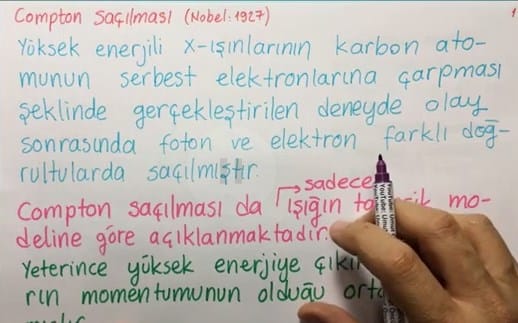 Compton Saçılması (Nobel: 1927)
Yüksek enerjili x-ışınlarının karbon ato-
munun serbest elektronlarına çarpması
şeklinde gerçekleştirilen deneyde olay
sonrasında foton ve elektron farklı doğ-
rultularda saçılmıştır.
sadece
Compton saçılması da ışığın mo-
deline göre açıklanmaktadır.
Yeterince yüksek enerjiye
rın momentumunun olduğu
YouTube: Umut